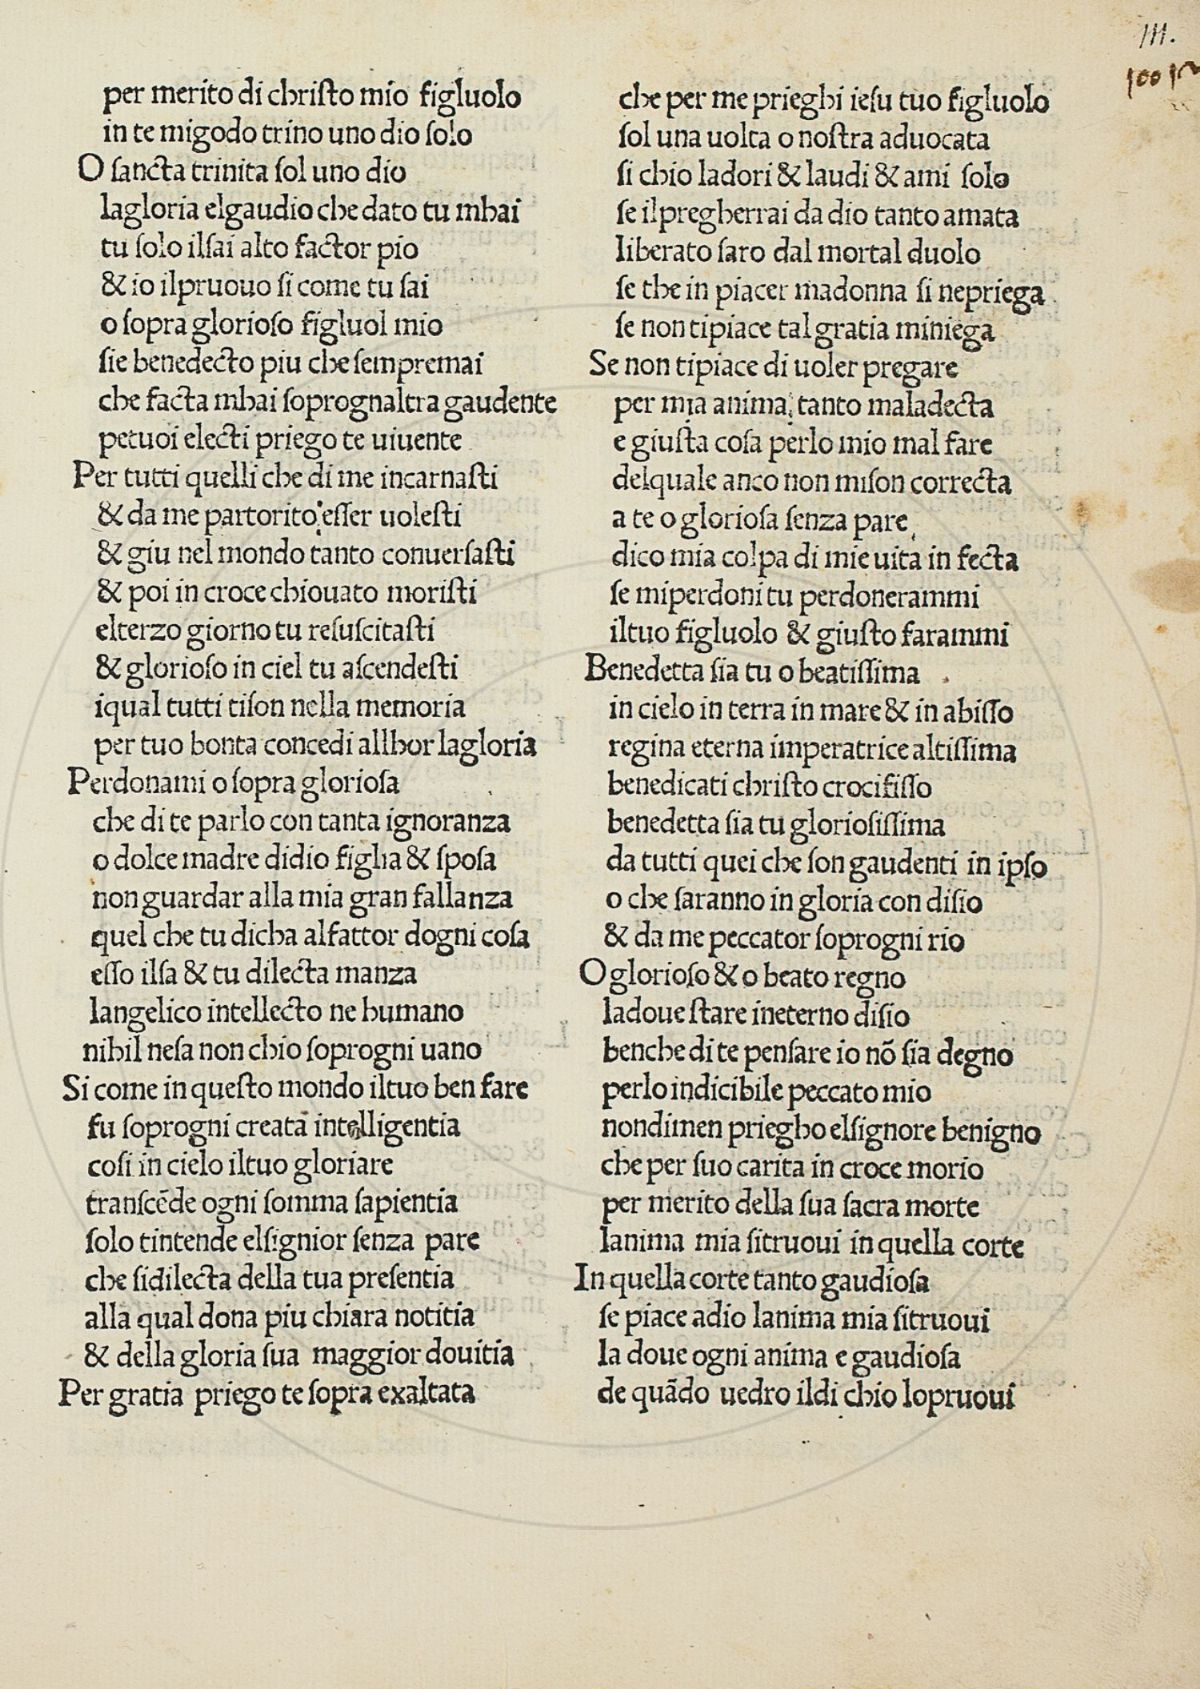 III.
per merito di christo mio figluolo
in te migodo trino uno dio solo
O sancta trinita sol uno dio
lagloria elgaudio che dato tu mhai
tu solo ilsai alto factor pio
& io ilpruouo si come tu sai
o sopra glorioso figluol mio
sie benedecto piu che sempremai
che facta mhai soprognaltra gaudente
petuoi electi priego te uiuente
Per tutti quelli che di me incarnasti
& da me partorito esser uolesti
& giu nel mondo tanto conuersasti
& poi in croce chiouato moristi
elterzo giorno tu resuscitasti
& glorioso in ciel tu ascendesti
iqual tutti tison nella memoria
per tuo bonta concedi allhor lagloria
Perdonami o sopra gloriosa
che di te parlo con tanta ignoranza
o dolce madre didio figlia & sposa
non guardar alla mia gran fallanza
quel che tu dicha alfattor dogni cosa
esso ilsa & tu dilecta manza
langelico intellecto ne humano
nihil nesa non chio soprogni uano
Si come in questo mondo iltuo ben fare
fu soprogni creata intelligentia
cosi in cielo iltuo gloriare
transcēde ogni somma sapientia
solo tintende elsignior senza pare
che sidilecta della tua presentia
alla qual dona piu chiara notitia
& della gloria sua maggior douitia
Per gratia priego te sopra exaltata
che per me prieghi iesu tuo figluolo
sol una uolta o nostra aduocata
si chio ladori & laudi & ami solo
se ilpregherrai da dio tanto amata
liberato saro dal mortal duolo
se the in piacer madonna si nepriega
se non tipiace tal gratia miniega
Se non tipiace di uoler pregare
per mia anima tanto maladecta
e giusta cosa perlo mio mal fare
delquale anco non mison correcta
a te o gloriosa senza pare
dico mia colpa di mie uita in fecta
se miperdoni tu perdonerammi
iltuo figluolo & giusto farammi
Benedetta sia tu o beatissima
in cielo in terra in mare & in abisso
regina eterna imperatrice altissima
benedicati christo crocifisso
benedetta sia tu gloriosissima
da tutti quei che son gaudenti in ipso
o che saranno in gloria con disio
& da me peccator soprogni rio
O glorioso & o beato regno
ladoue stare ineterno disio
benche di te pensare io nō sia degno
perlo indicibile peccato mio
nondimen priegho elsignore benigno
che per suo carita in croce morio
per merito della sua sacra morte
lanima mia sitruoui in quella corte
In quella corte tanto gaudiosa
se piace adio lanima mia sitruoui
la doue ogni anima e gaudiosa
de quādo uedro ildi chio lopruoui